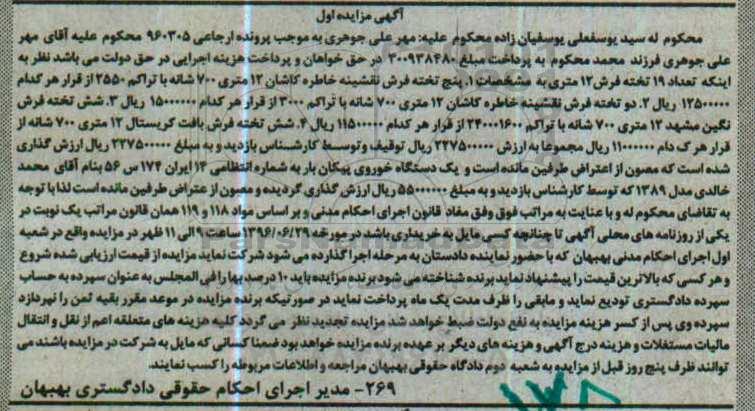 آگهی مزایده اول
محکوم له سید یوسفعلی یوسفیان زاده محکوم علیه: مهر علی جوهری به موجب پرونده ارجاعی ۹۶۰۳۰۵ محکوم علیه آقای مهر
علی جوهری فرزند محمد محکوم به پرداخت مبلغ ۳۰۰۹۳۸۴۸۰ در حق خواهان و پرداخت هزینه اجرایی در حق دولت می باشد نظر به
اینکه تعداد ۱۹ تخته فرش ۱۲ متری به مشخصات ۱. پنج تخته فرش نقشینه خاطره کاشان ۱۲ متری ۷۰۰ شانه با تراکم ۲۵۵۰ از قرار هر کدام
۱۲۵۰۰۰۰۰ ریال ۲. دو تخته فرش نقشینه خاطره کاشان ۱۲ متری ۷۰۰ شانه با تراکم ۳۰۰۰ از قرار هر کدام ۱۵۰۰۰۰۰۰ ریال ۳. شش تخته فرش
نگین مشهد ۱۲ متری ۷۰۰ شانه با تراکم ۲۴۰۰۰۱۶۰۰ از قرار هر کدام ۱۱۵۰۰۰۰۰ ریال ۴. شش تخته فرش بافت کریستال ۱۲ متری ۷۰۰ شانه از
قرار هر ک دام ۱۱۰۰۰۰۰۰ ریال مجموعا به ارزش ۲۲۷۵۰۰۰۰۰ ریال توقیف و توسط کارشناس بازدید و به مبلغ ۲۲۷۵۰۰۰۰۰ ریال ارزش گذاری
شده است که مصون از اعتراض طرفین مانده است و یک دستگاه خوروی پیکان بار به شماره انتظامی ۱۴ ایران ۱۷۴ س ۵۶ بنام آقای محمد
خالدی مدل ۱۳۸۹ که توسط کارشناس بازدید و به مبلغ ۵۵۰۰۰۰۰۰ ریال ارزش گذاری گردیده و مصون از عتراض طرفین مانده است لذا با توجه
به تقاضای محکوم له و با عنایت به مراتب فوق وفق مفاد قانون اجرای احکام مدنی و بر اساس مواد ۱۱۸ و ۱۱۹ همان قانون مراتب یک نوبت در
یکی از روزنامه های محلی آگهی تا چنانچه کسی مایل به خریداری باشد در مورخه ۱۳۹۶/۰۶/۲۹ ساعت ۹ الی ۱۱ ظهر در مزایده واقع در شعبه
اول اجرای احکام مدنی بهبهان که با حضور نماینده دادستان به مرحله اجرا گذارده می شود شرکت نماید مزایده از قیمت ارزیابی شده شروع
و هر کسی که بالاترین قیمت را پیشنهاد نماید برنده شناخته می شود برنده مزایده باید ۱۰ درصد بها را فی المجلس به عنوان سپرده به حساب
سپرده دادگستری تودیع نماید و مابقی را ظرف مدت یک ماه پرداخت نماید در صورتیکه برنده مزایده در موعد مقرر بقیه ثمن را نپردازد
سپرده وی پس از کسر هزینه مزایده به نفع دولت ضبط خواهد شد مزایده تجدید نظر می گردد کلیه هزینه های متعلقه اعم از نقل و انتقال
مالیات مستغلات و هزینه درج آگهی و هزینه های دیگر بر عهده برنده مزایده خواهد بود ضمنا کسانی که مایل به شرکت در مزایده باشند می
توانند ظرف پنج روز قبل از مزایده به شعبه دوم دادگاه حقوقی بهبهان مراجعه و اطلاعات مربوطه را کسب نمایند.
۲۶۹- مدیر اجرای احکام حقوقی دادگستری بهبهان